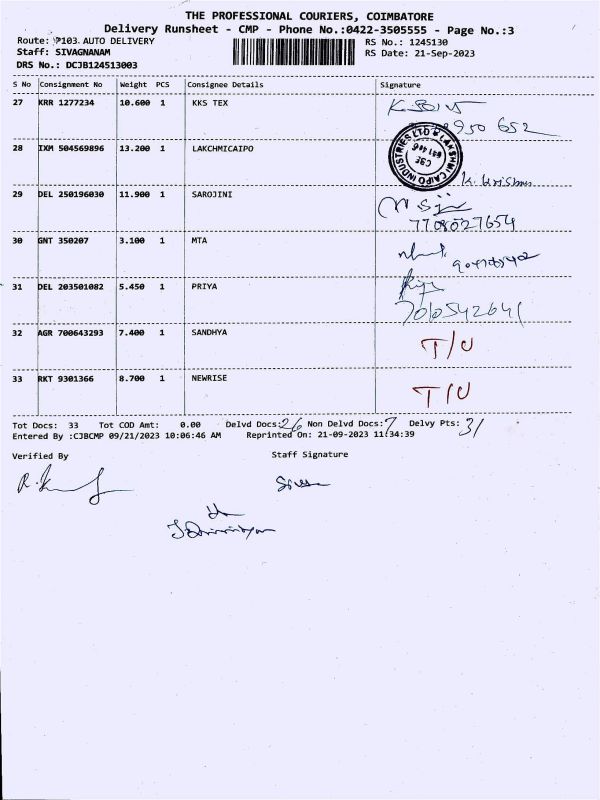 THE PROFESSIONAL COURIERS, COIMBATORE
Delivery Runsheet - CMP - Phone No.:0422-3505555 - Page No.:3
Route: P103 AUTO DELIVERY RS No.: 1245130
Staff: SIVAGNANAM RS Date: 21-Sep-2023
DRS No.: DCJB124513003
S No Consignment No Weight PCS Consignee Details Signature
27 KRR 1277234 10.600 1 KKS TEX
950 652
28 IXM 504569896 13.200 1 LAKCHMICAIPO
LAKSHMI CAIPO INDUSTRIES LTD
CBE
29 DEL 250196030 11.900 1 SAROJINI
7708027654
30 GNT 350207 3.100 1 MTA
31 DEL 203501082 5.450 1 PRIYA
32 AGR 700643293 7.400 1 SANDHYA T/U
33 RKT 9301366 8.700 1 NEWRISE T/U
Tot Docs: 33 Tot COD Amt: 0.00 Delvd Docs: 26 Non Delvd Docs: 7 Delvy Pts: 31
Entered By :CJBCMP 09/21/2023 10:06:46 AM Reprinted On: 21-09-2023 11:34:39
Verified By Staff Signature